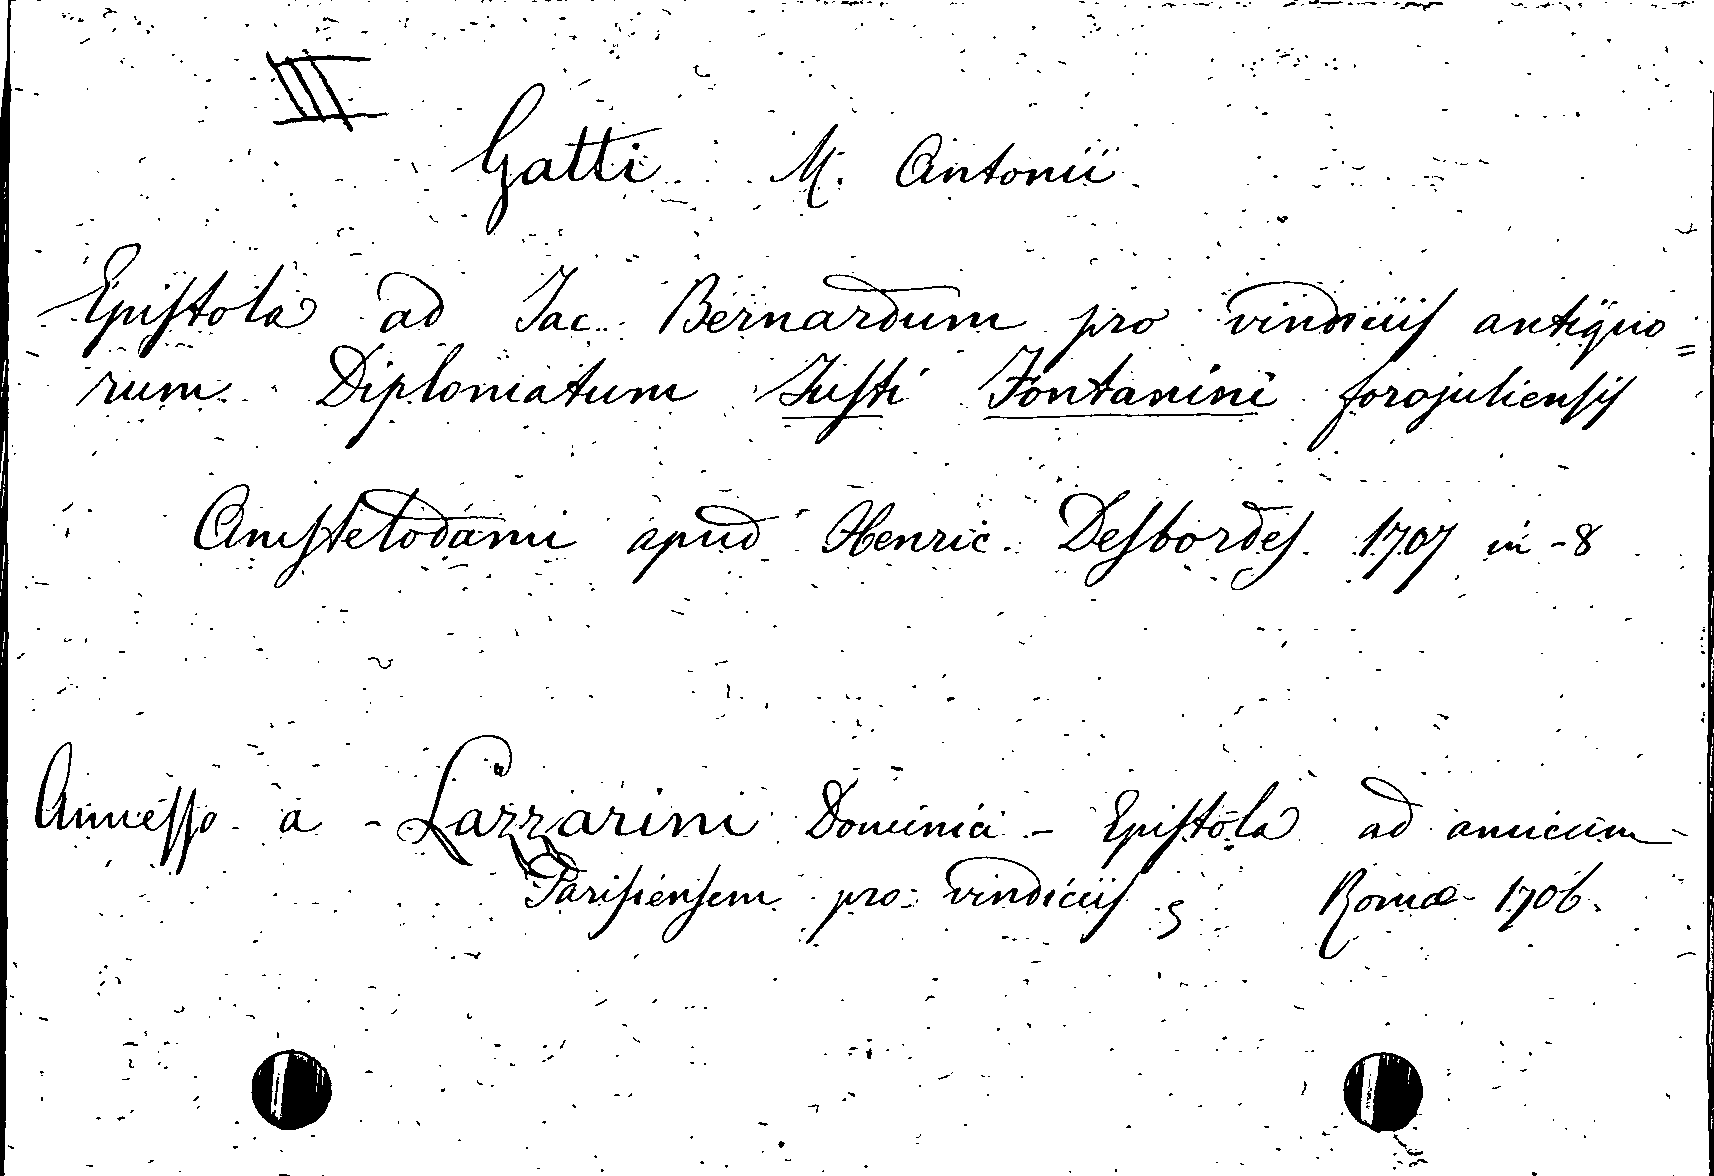 III
Gatti M. Antonii
Epistola ad Jac. Bernardum pro vindiciis antiquo=
rum Diplomatum Justi Fontanini forojuliensis
Amstelodami apud Henric. Desbordes. 1707 in-8
Annesso a - Lazzarini Dominici - Epistola ad amicum
Parisiensem pro vindiciis Romæ - 1706.